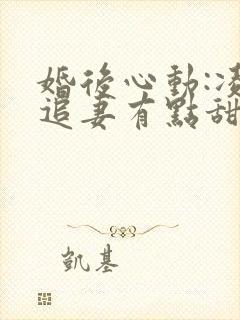 婚後心動:凌
追妻有點甜
凱基